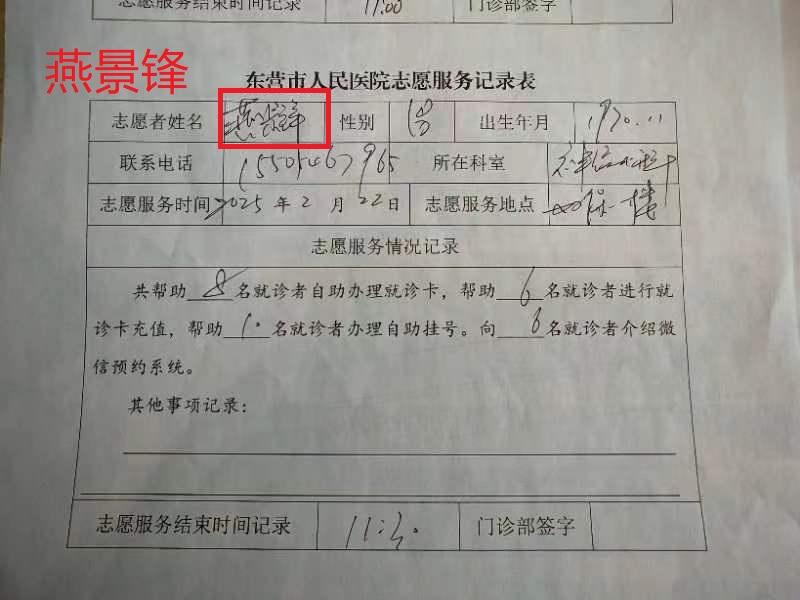 志愿服务结束时间记录 11:00 门诊部签字
燕景锋
东营市人民医院志愿服务记录表
志愿者姓名 燕景锋 性别 男 出生年月 1970.11
联系电话 15505467965 所在科室
志愿服务时间 2025年2月22日 志愿服务地点 一楼
志愿服务情况记录
共帮助 8 名就诊者自助办理就诊卡，帮助 6 名就诊者进行就
诊卡充值，帮助 10 名就诊者办理自助挂号。向 8 名就诊者介绍微
信预约系统。
其他事项记录：
志愿服务结束时间记录 11:30 门诊部签字